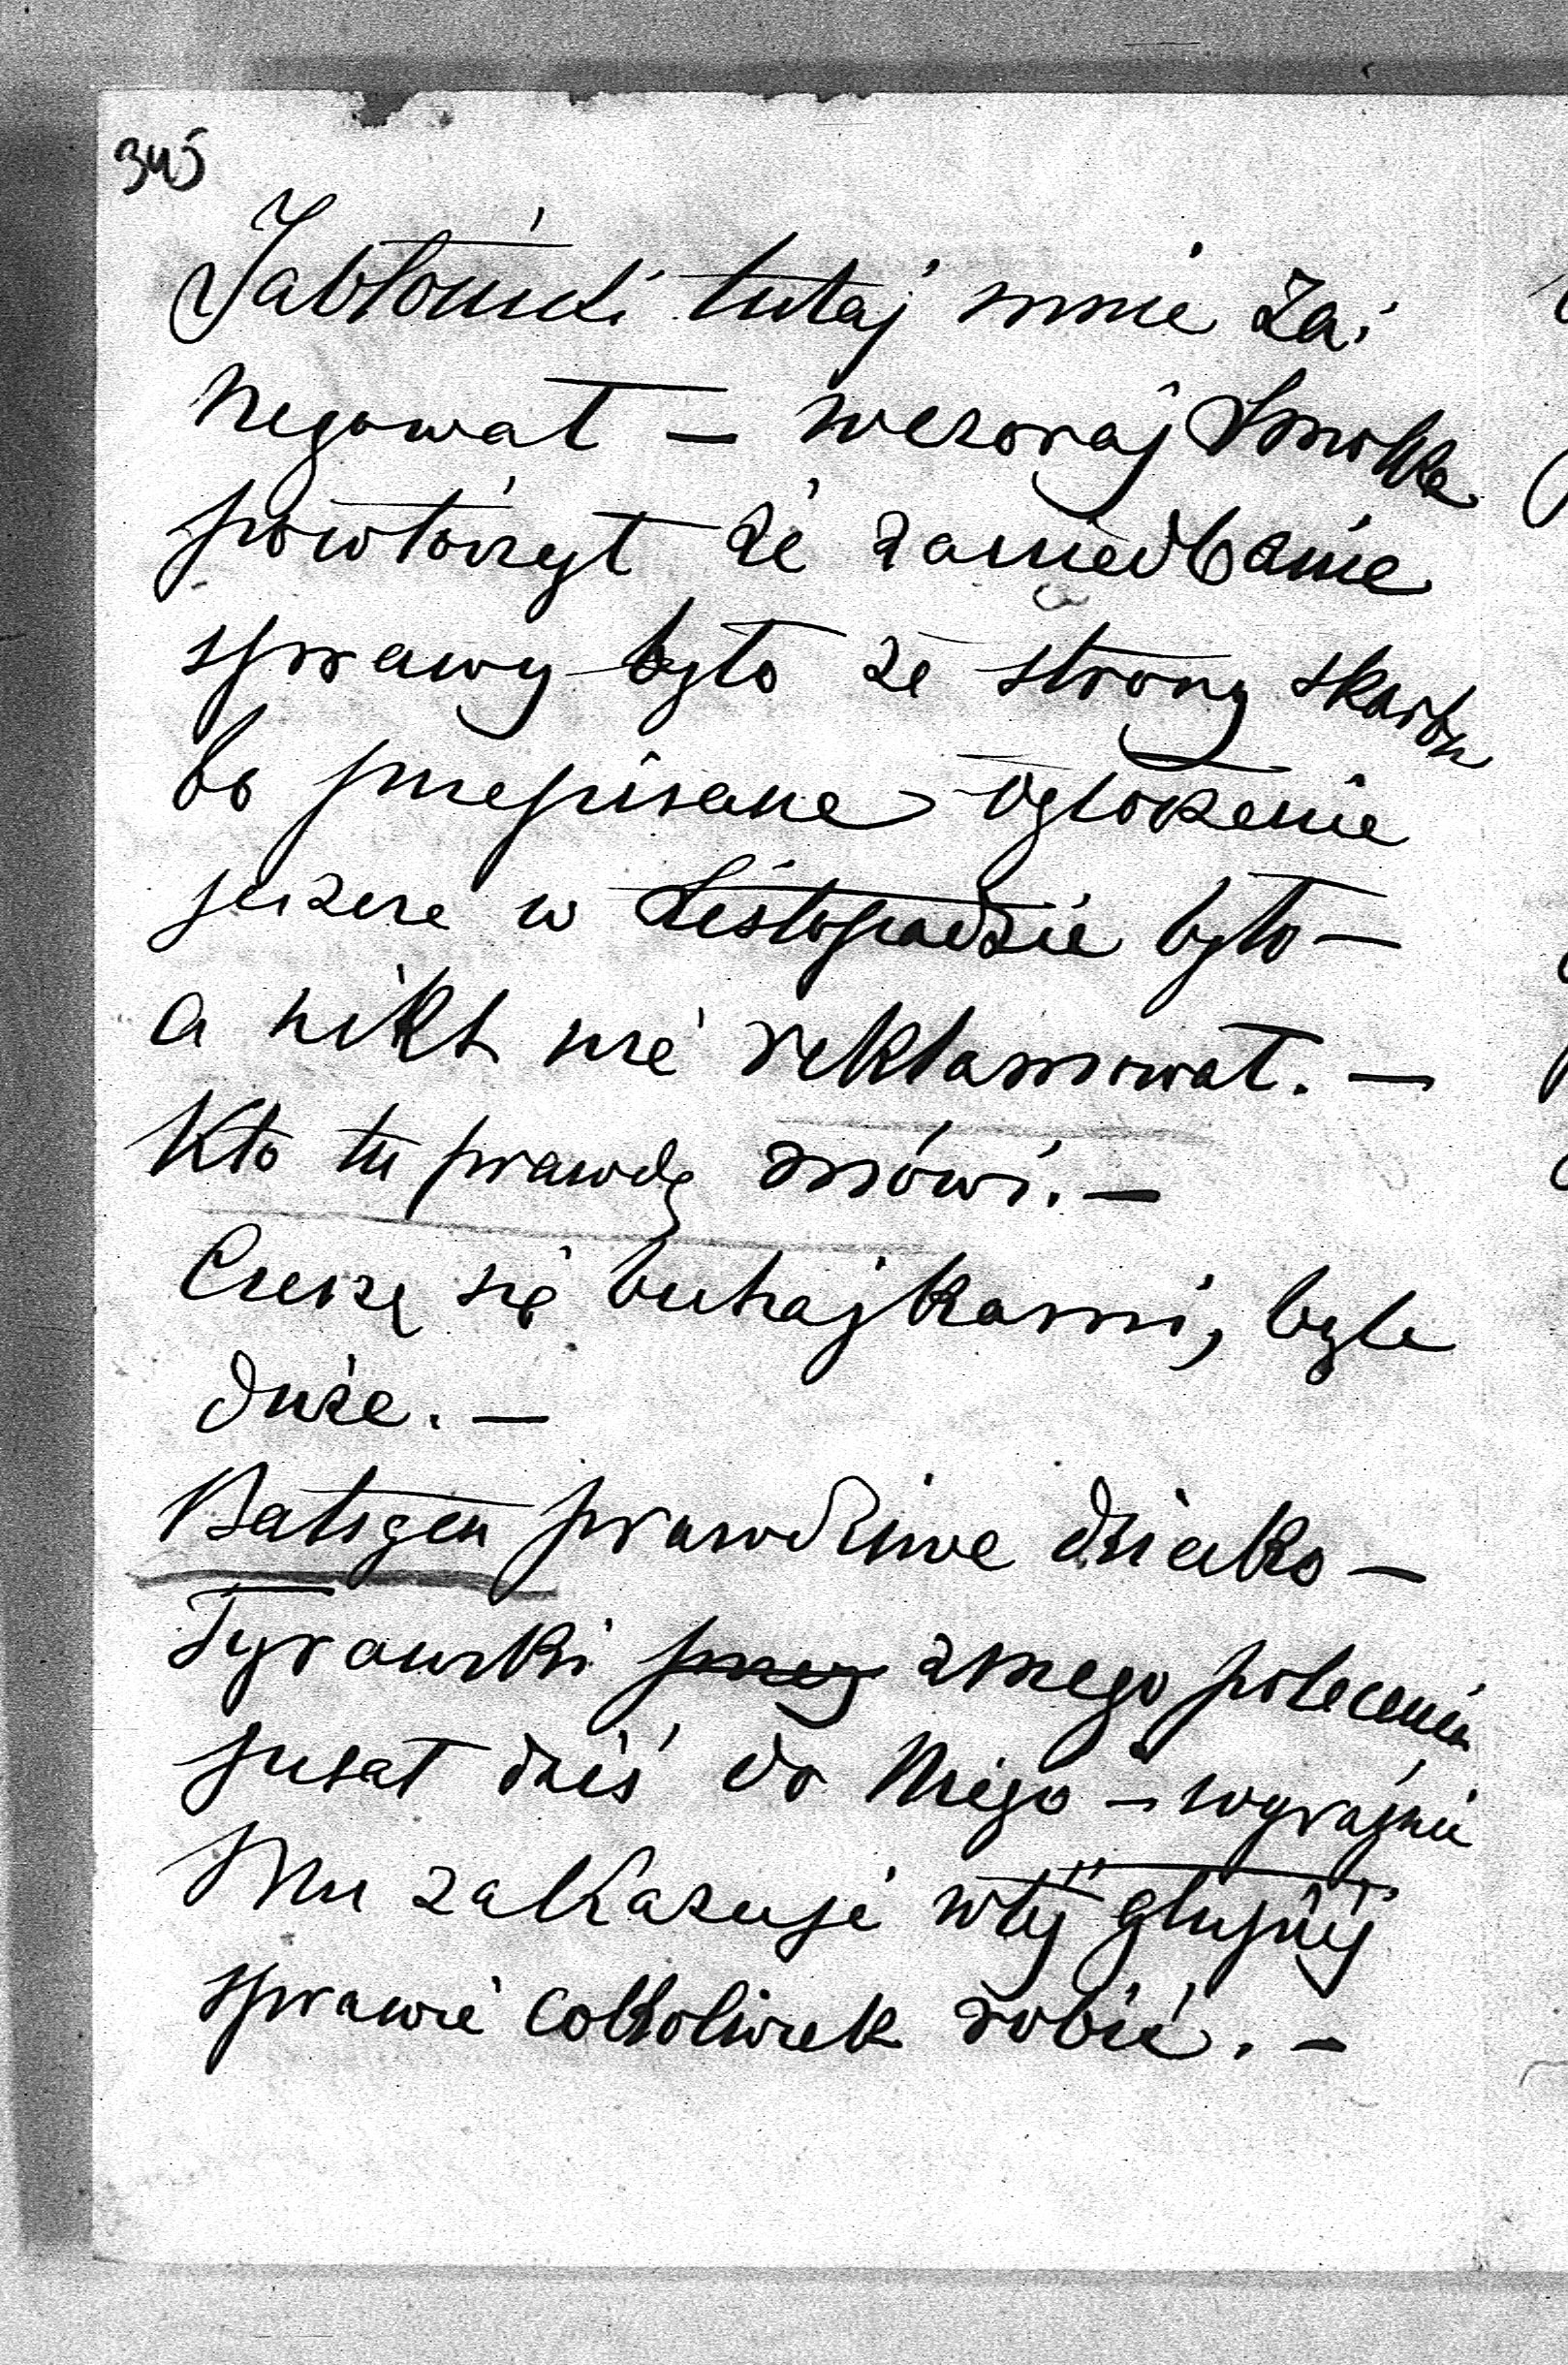 345
Jabłoński tutaj mnie Za
negował — wczoraj Smolka
powtórzył że zaniedbanie
sprawy było ze strony skarbu
bo przepisane ogłoszenie
jeszcze w Listopadzie było —
a nikt nie reklamował. —
Kto tu prawdę mówi. —
Cieszę się buhajkami, byle
duże. —
prawdziwe dziecko —
Tyrawski przez zmego polecenia
pisał dziś do Niego — i wyraźnie
Mu zakazuje wtéj głupiéj
sprawie cokolwiek robić. —